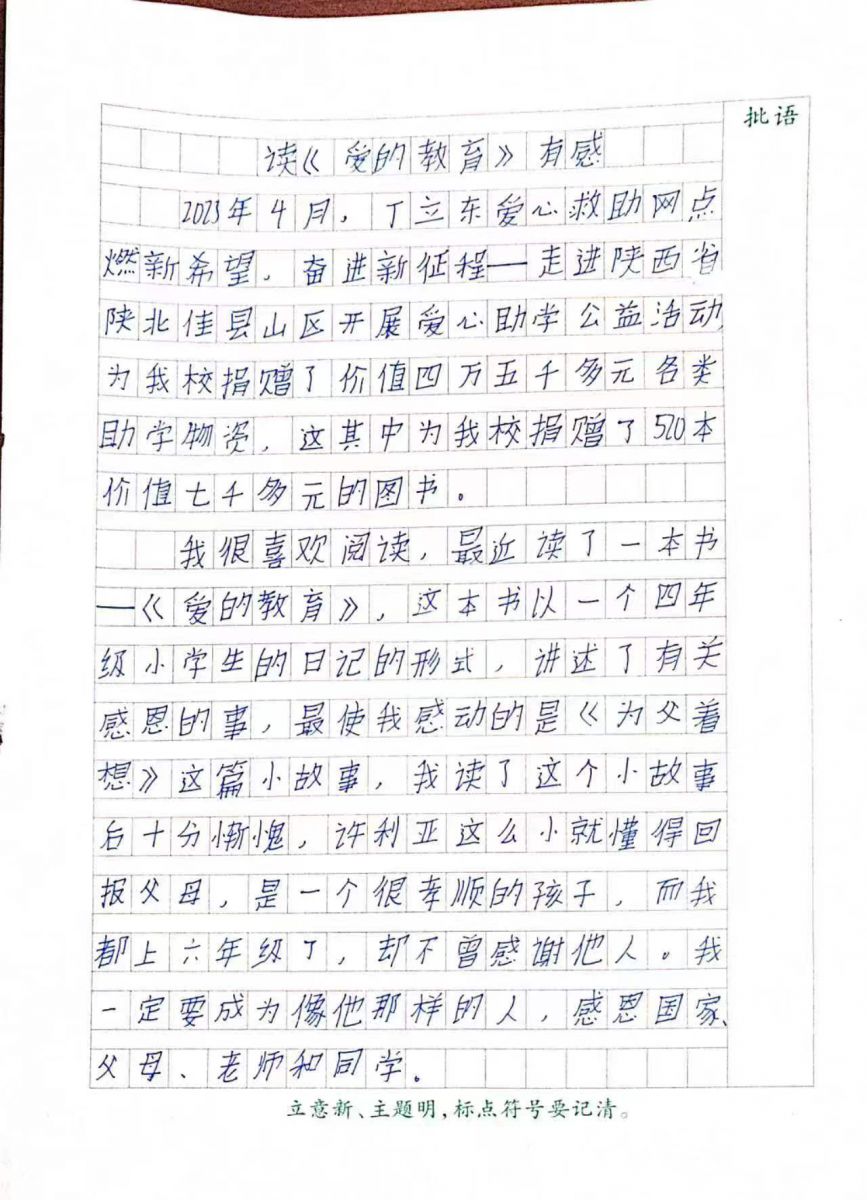 批语
读《爱的教育》有感
2023年4月，丁立东爱心救助网点
燃新希望，奋进新征程——走进陕西省
陕北佳县山区开展爱心助学公益活动，
为我校捐赠了价值四万五千多元各类
助学物资，这其中为我校捐赠了520本
价值七千多元的图书。
我很喜欢阅读，最近读了一本书
——《爱的教育》，这本书以一个四年
级小学生的日记的形式，讲述了有关
感恩的事，最使我感动的是《为父着
想》这篇小故事，我读了这个小故事
后十分惭愧，许利亚这么小就懂得回
报父母，是一个很孝顺的孩子，而我
都上六年级了，却不曾感谢他人。我
一定要成为像他那样的人，感恩国家、
父母、老师和同学。
立意新、主题明，标点符号要记清。